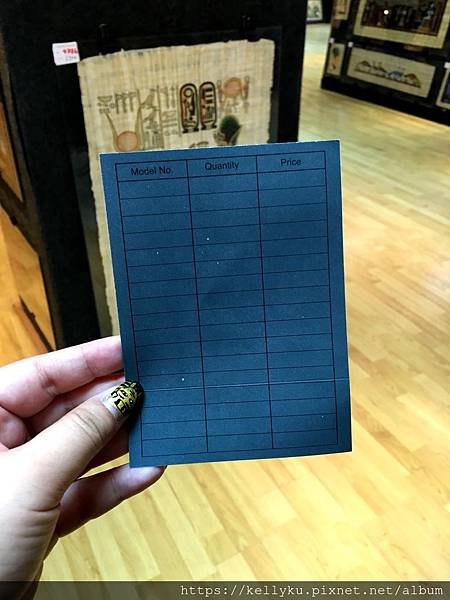 Model No. Quantity Price
https://kellyku.pixnet.net/album